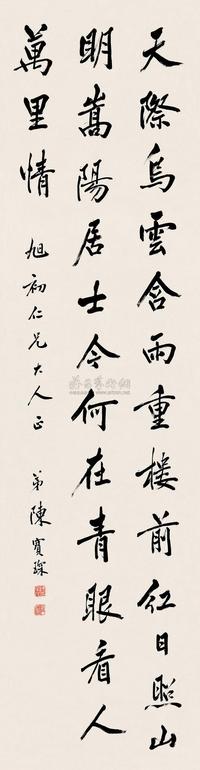 天際烏雲含雨重樓前紅日照山
明嵩陽居士今何在青眼看人
萬里情
旭初仁兄大人正
弟陳寶琛